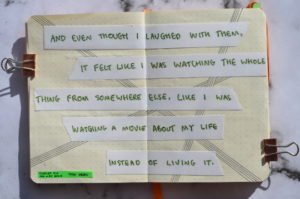 AND EVEN THOUGH I LAUGHED WITH THEM,
IT FELT LIKE I WAS WATCHING THE WHOLE
THING FROM SOMEWHERE ELSE, LIKE I WAS
WATCHING A MOVIE ABOUT MY LIFE
INSTEAD OF LIVING IT.